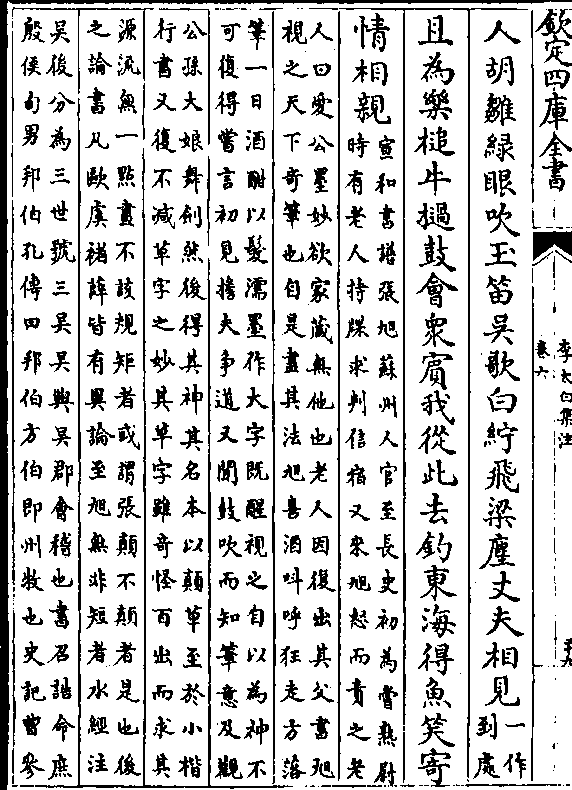 欽定四庫全書
李太白集注
卷六
人胡雛綠眼吹玉笛吳歌白紵飛梁塵丈夫相見一作到處
且為樂槌牛撾鼓會衆賓我從此去釣東海得魚笑寄
情相親
宣和書譜張旭蘇州人官至長史初為嘗熟尉
時有老人持牒求判信宿又來旭怒而責之老
人曰愛公墨妙欲家藏無他也老人因復出其父書旭
視之天下奇筆也自是盡其法旭喜酒叫呼狂走方落
筆一日酒酣以髮濡墨作大字既醒視之自以為神不
可復得嘗言初見擔夫爭道又聞鼓吹而知筆意及觀
公孫大娘舞劍然後得其神其名本以顛草至於小楷
行書又復不減草字之妙其草字雖奇怪百出而求其
源流無一點畫不該規矩者或謂張顛不顛者是也後
之論書凡歐虞褚薛皆有異論至旭無非短者水經注
吳後分為三世號三吳吳興吳郡會稽也書召誥命庶
殷侯甸男邦伯孔傳曰邦伯方伯即州牧也史記曹參